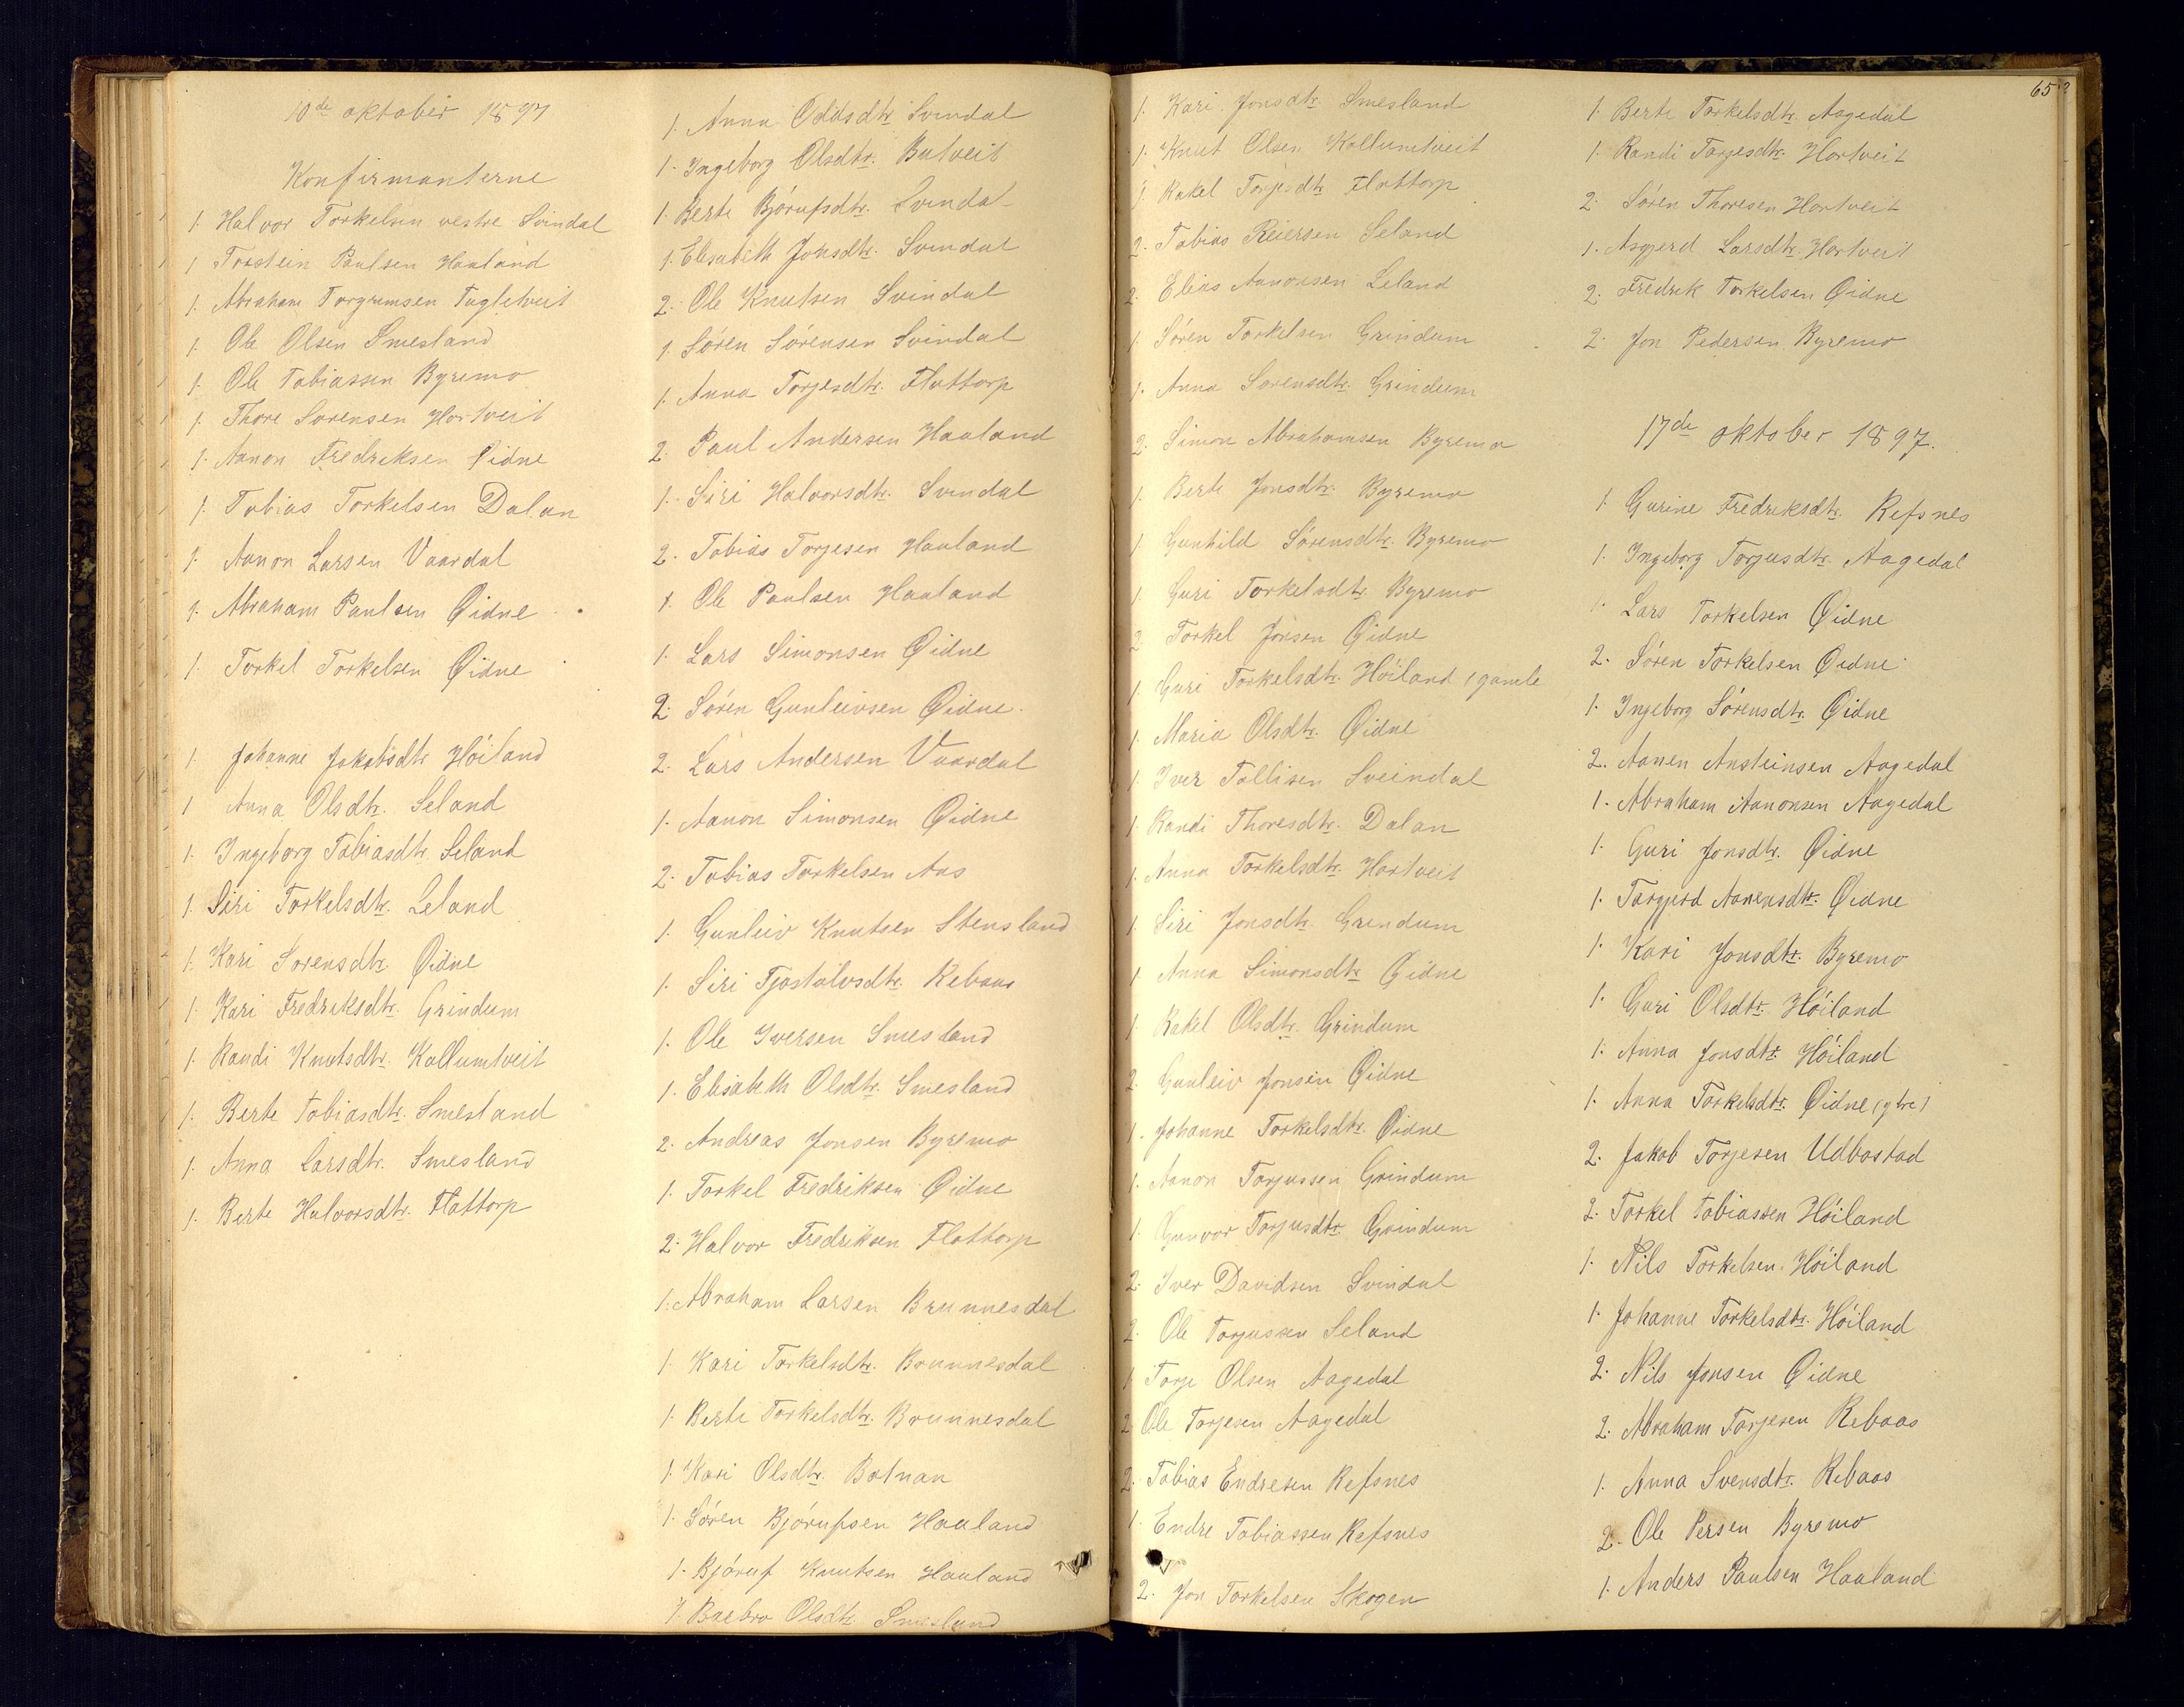 10de oktober 1897
Konfirmanterne
1. Halvor Torkelsen vestre Svindal
1 Torstein Paulsen Haaland
1. Abraham Torgrimsen Fugletveit
1. Ole Olsen Smesland
1. Ole Tobiassen Byremo
1. Thore Sørensen Hortveit
1. Aanon Fredriksen Øidne
1. Tobias Torkelsen Dalan
1. Aanon Larsen Vaardal
1. Abraham Paulsen Øidne
1. Torkel Torkelsen Øidne
1. Johanne Jakobsdtr Höiland
1 Anna Olsdtr. Seland
1. Ingeborg Tobiasdtr. Seland
1. Siri Torkelsdtr. Leland
1. Kari Sorensdtr. Øidne
1. Kari Fredriksdtr. Grindum
1. Randi Knutsdtr. Kollumtveit
1. Berte Tobiasdtr. Smesland
1. Anna Larsdtr. Smesland
1. Berte Halvorsdtr. Flottorp
1. Anna Oddsdtr Svindal
1. Ingeborg Olsdtr. Butveit
1. Berte Bjórufsdtr. Svindal
1. Elisabeth Jonsdtr. Svindal
2. Ole Knutsen Svindal
1. Sóren Sórensen Svindal
1. Anna Torjesdtr. Flottorp
2. Paul Andersen Haaland
1. Siri Halvorsdtr. Svindal
2. Tobias Torjesen Haaland
1. Ole Paulsen Haaland
1. Lars Simonsen Øidne
2. Sóren Gunleivsen Øidne.
2. Lars Andersen Vaardal
1. Aanon Simonsen Øidne
2. Tobias Torkelsen Aas
1. Gunleiv Knutsen Stensland
1. Siri Tjostolvsdtr. Rebaas
1. Ole Iversen Smesland
1. Elisabeth Olsdtr. Smesland
2. Andreas Jonsen Byremo
1. Torkel Fredriksen Øidne
2. Halvor Fredriksen Flottorp
1. Abraham Larsen Brunnesdal
1. Kari Torkelsdtr. Brunnesdal
1. Berte Torkelsdtr. Brunnesdal
1. Kari Olsdtr. Botnan
1. Sóren Bjórufsen Haaland
1. Bjóruf Knutsen Haaland
1. Baebro Olsdtr Smesland
65
1. Kari Jonsdtr Smesland
1. Knut Olsen Kollumtveit
1 Rakel Torjesdtr Flottorp
2. Tobias Reiersen Seland
2. Elias Aanonsen Leland
1. Sóren Torkelsen Grindum
1. Anna Sorensdtr. Grindum
2. Simon Abrahamsen Byremo
1. Berte Jonsdtr. Byremo
1 Gunhild Sórensdtr. Byremo
1. Guri Torkelsdtr. Byremo
2 Torkel Jonsen Øidne
1. Guri Torkelsdtr. Höiland (gamle
1. Maria Olsdtr. Øidne
1 Iver Tallisen Sveindal
1. Randi Thoresdtr. Dalan
1. Anna Torkelsdtr. Hortveit
1 Siri Jonsdtr. Grindum
1 Anna Simonsdtr Øidne
1 Rakel Olsdtr. Grindum
2. Gunleiv Jonsen Øidne
1. Johanne Torkelsdtr. Øidne
1. Aanon Torjussen Grindum
1. Gunvor Torjusdtr. Grindum
2. Iver Davidsen Svindal
2. Ole Torjussen Seland
1 Torje Olsen Aagedal
2 Ole Torjesen Aagedal
2. Tobias Endresen Refsnes
1. Endre Tobiassen Refsnes
2. Jon Torkelsen Skogen
1. Berte Torkelsdtr. Aagedal
1. Randi Torjesdtr. Hortveit
2. Sóren Thoresen Hortveit
1. Asgjerd Larsdtr. Hortveit
2. Fredrik Torkelsen Øidne
2. Jon Pedersen Byremo
17de oktober 1897.
1. Gurine Fredriksdtr. Refsnes
1. Ingeborg Torjusdtr. Aagedal
1. Lars Torkelsen Øidne
2. Sóren Torkelsen Øidne.
1. Ingeborg Sórensdtr. Øidne
2. Aanen Ansteinsen Aagedal
1. Abraham Aanonsen Aagedal
1. Guri Jonsdtr. Øidne
1. Targjerd Aanensdtr. Øidne
1. Kari Jonsdtr. Byremo
1. Guri Olsdtr. Höiland
1. Anna Jonsdtr. Höiland
1. Anna Torkelsdtr. Øidne (ytre)
2. Jakob Torjesen Udbostad
2. Torkel Tobiassen Höiland
1. Nils Torkelsen Höiland
1. Johanne Torkelsdtr. Höiland
2. Nils Jonsen Øidne
2. Abraham Torjesen Rebaas
1. Anna Svensdtr. Rebaas
2. Ole Persen Byremo
1. Anders Paulsen Haaland